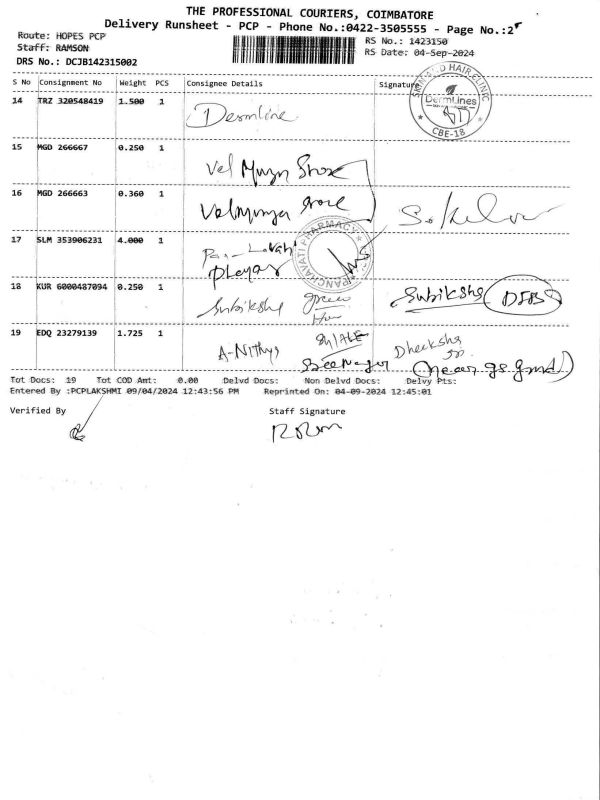 THE PROFESSIONAL COURIERS, COIMBATORE
Delivery Runsheet - PCP - Phone No.:0422-3505555 - Page No.:2
Route: HOPES PCP
RS No.: 1423150
Staff: RAMSON
RS Date: 04-Sep-2024
DRS No.: DCJB142315002
S No Consignment No Weight PCS Consignee Details Signature
14 TRZ 320548419 1.500 1 Dermline
SKIN AND HAIR CLINIC
DermLines
CBE-18
15 MGD 266667 0.250 1 Vel Store
16 MGD 266663 0.360 1 Store
17 SLM 353906231 4.000 1
PANCHAVATI PHARMACY
18 KUR 6000487094 0.250 1 Subiksha Green Subiksha
19 EDQ 23279139 1.725 1 A-Nithya Dheeksha
(near gs
Tot Docs: 19 Tot COD Amt: 0.00 Delvd Docs: Non Delvd Docs: Delvy Pts:
Entered By :PCPLAKSHMI 09/04/2024 12:43:56 PM Reprinted On: 04-09-2024 12:45:01
Verified By Staff Signature